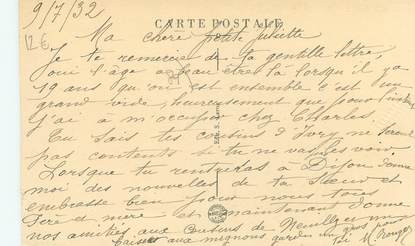 9/7/32
CARTE POSTALE
12€
Ma chère petite Juliette
Je te remercie de ta gentille lettre,
oui l'âge a beau être là lorsqu'il y a
19 ans qu'on est ensemble c'est un
grand vide, heureusement que pour
j'ai à m'occuper chez Charles.
Tu sais tes cousins d'Ivry ne seront
pas contents si tu ne vas les voir.
Lorsque tu rentreras à Dijon donne
moi des nouvelles de ta
embrasse bien pour nous tous
Père et mère et maintenant donne
nos amitiés aux Cousins de Neuilly
Baisers aux mignons garde un gros pour
toi M. Rouge